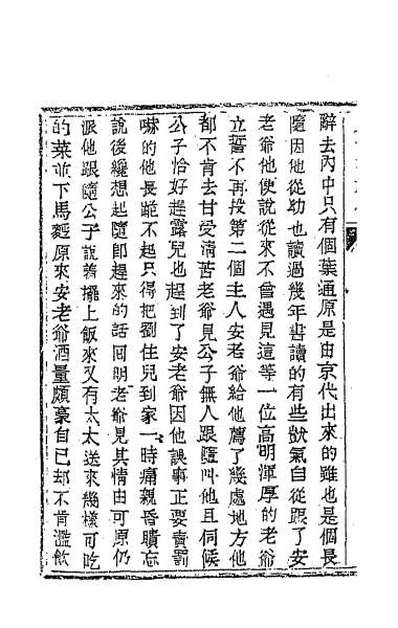 辭去內中只有個葉通原是由京代出來的雖也是個長
隨因他從幼也讀過幾年書讀的有些獃氣自從跟了安
老爺他便說從來不曾遇見這等一位高明渾厚的老爺
立誓不再投第二個主人安老爺給他薦了幾處地方他
都不肯去甘愛清苦老爺見公子無人跟隨叫他且伺候
公子恰好趕露兒也趕到了安老爺因他誤事正要責罰
嚇的他長跪不起只得把劉住兒到家一時痛親昏聵忘
說後纔想起隨卽趕來的話回明老爺見其情由可原仍
派他跟隨公子說着擺上飯來又有太太送來幾樣可吃
的菜並下馬麵原來安老爺酒量頗豪自已却不肯濫飲